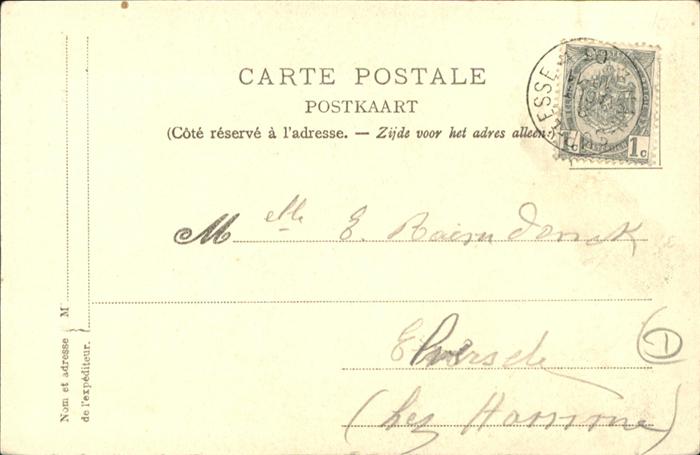 CARTE POSTALE
POSTKAART
(Côté réservé à l'adresse. — Zijde voor het adres alleen.)
1c 1c
M elle E.
Elversele
(chez Hamme)
1
Nom et adresse } M
de l'expéditeur.